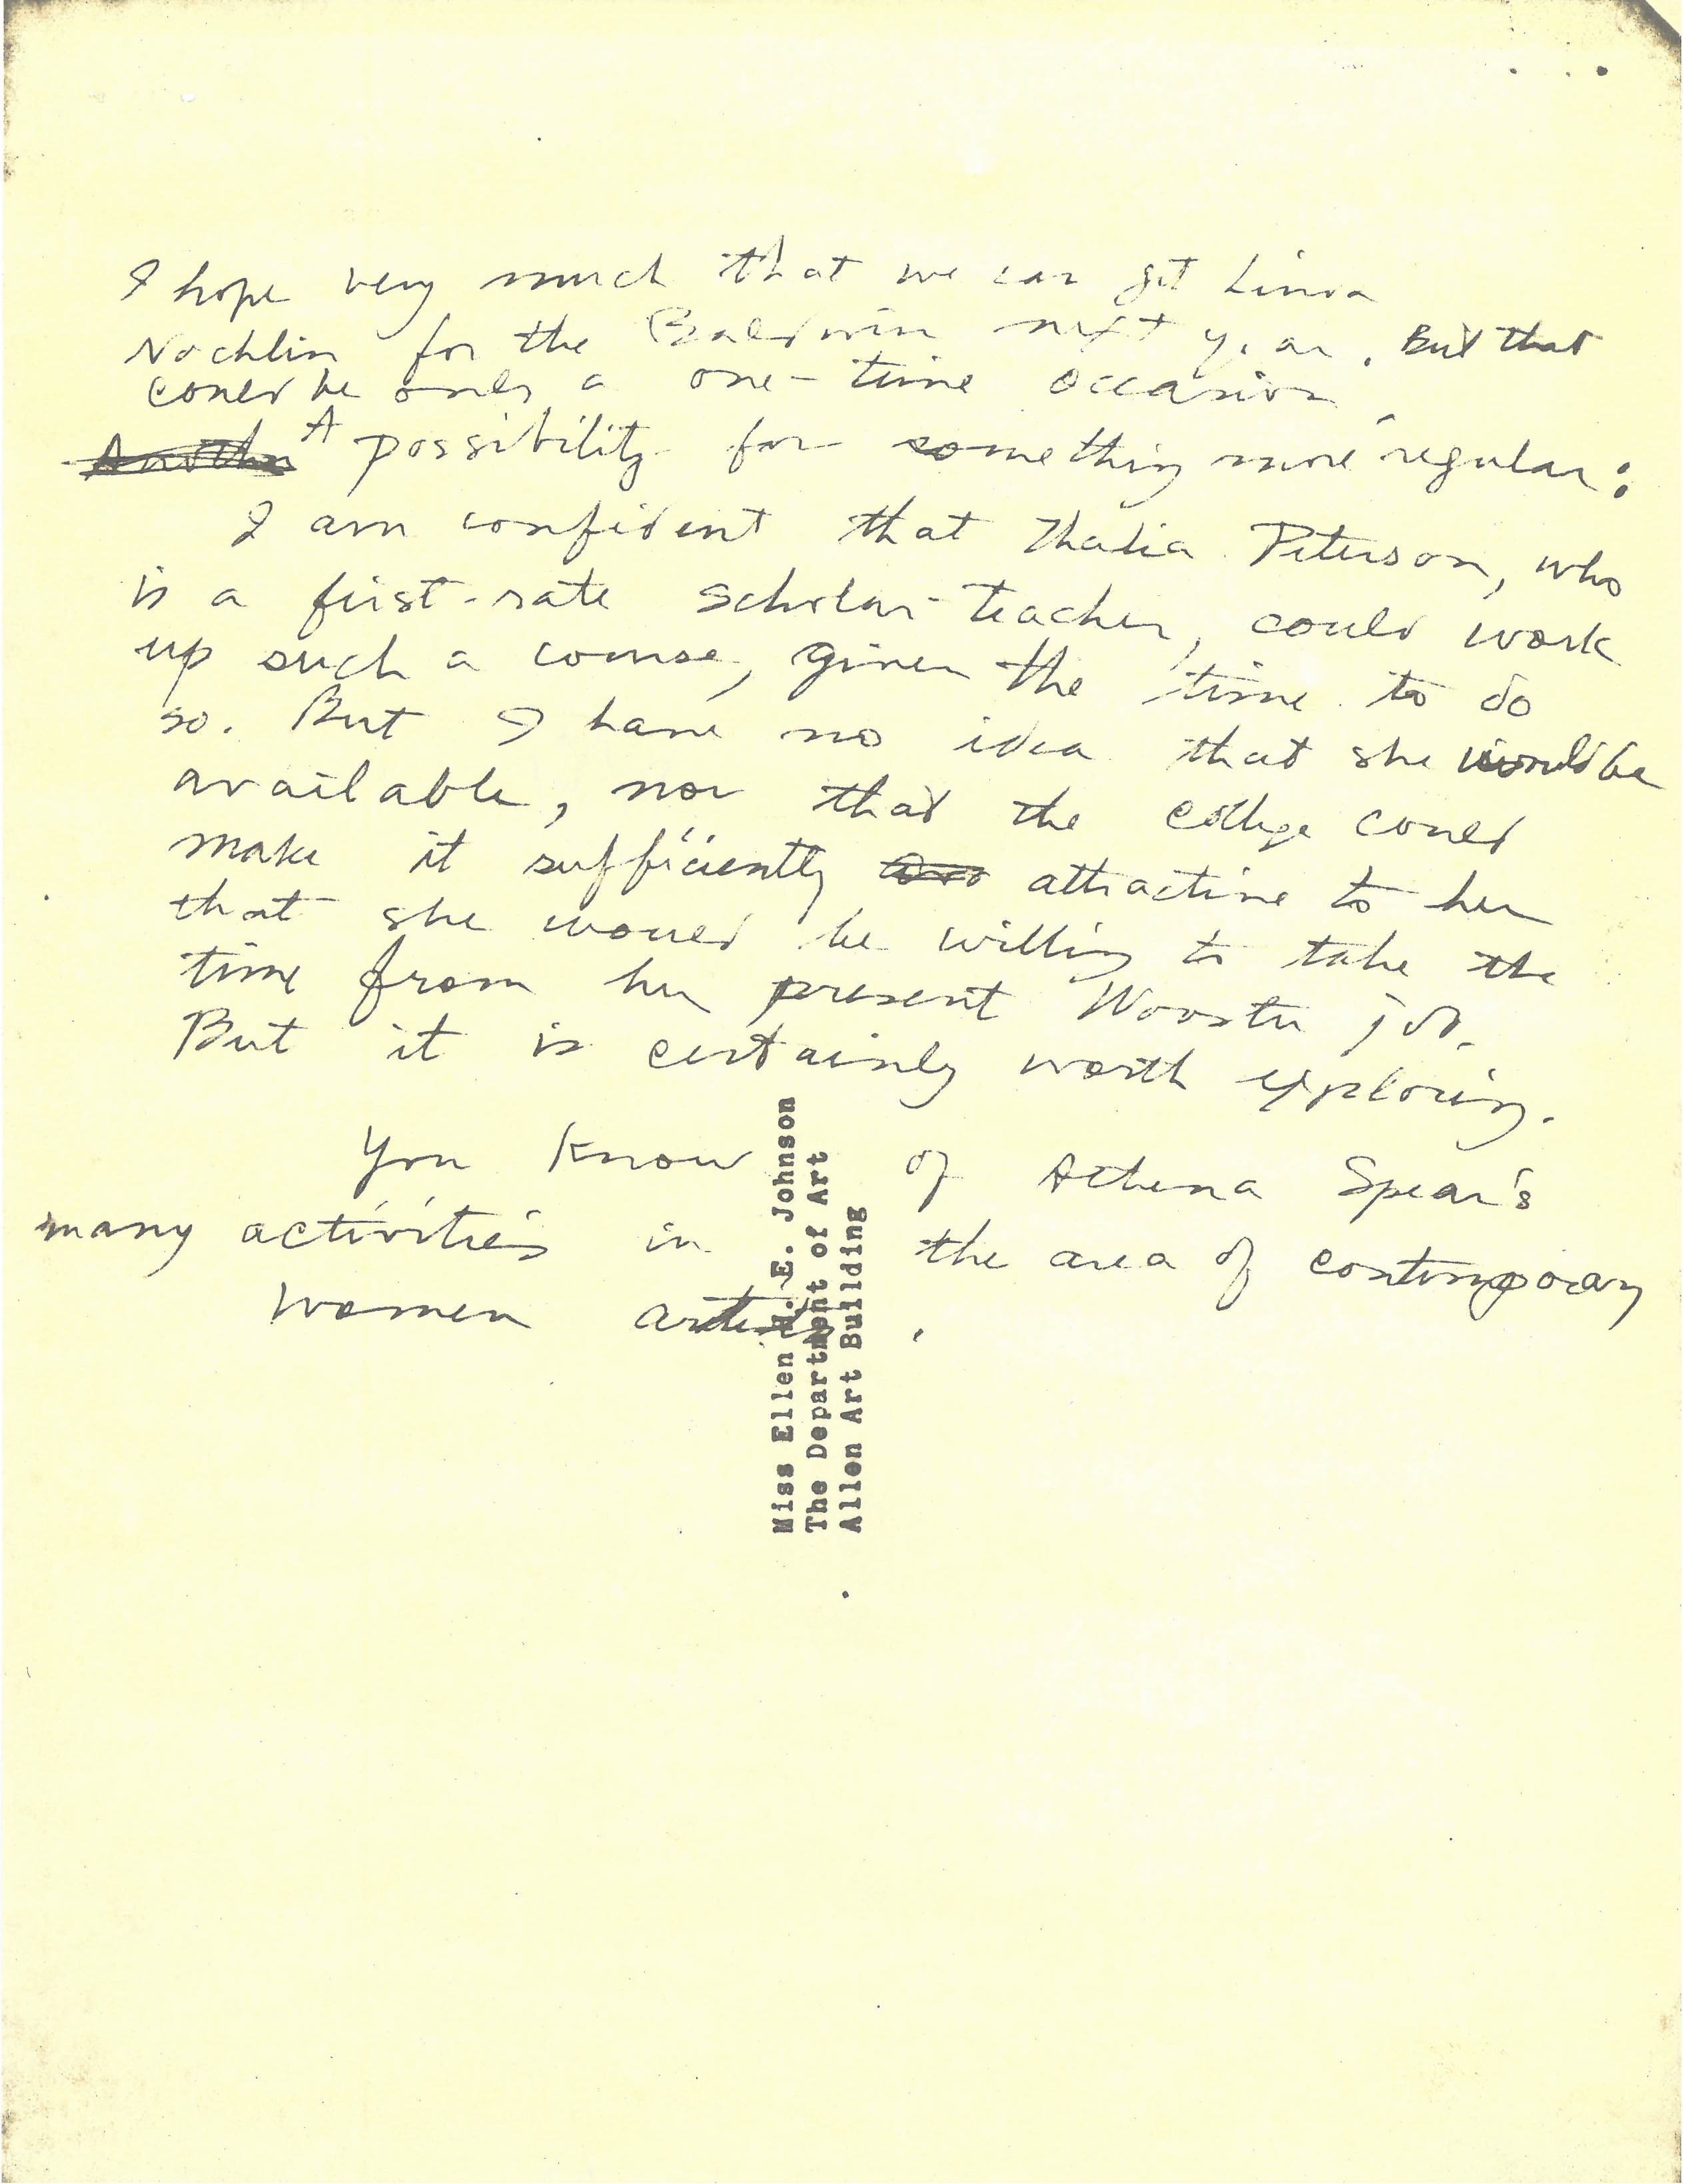 I hope very much that we can get Linda
Nochlin for the Baldwin next year. But that
could be only a one-time occasion.
Another A possibility for something more regular:
I am confident that Thalia Peterson, who
is a first-rate scholar-teacher, could work
up such a course, given the time to do
so. But I have no idea that she would be
available, nor that the college could
make it sufficiently attractive to her
that she would be willing to take the
time from her present Wooster job.
But it is certainly worth exploring.
You know of Athena Spear's
many activities in the area of contemporary
women artists.
Miss Ellen H. E. Johnson
The Department of Art
Allen Art Building